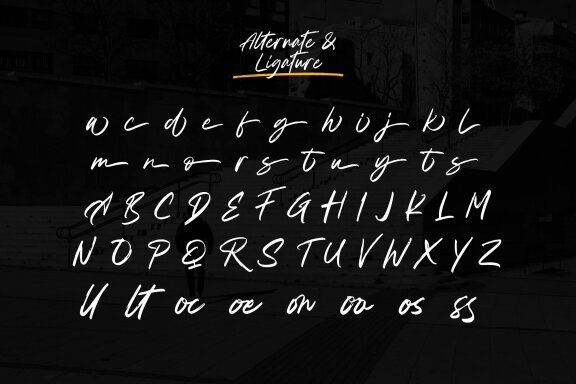 Alternate &
Ligature
a c d e f g h i j k l
m n o r s t u y t s
A B C D E F G H I J K L M
N O P Q R S T U V W X Y Z
ll lt oc oe on oo os ss